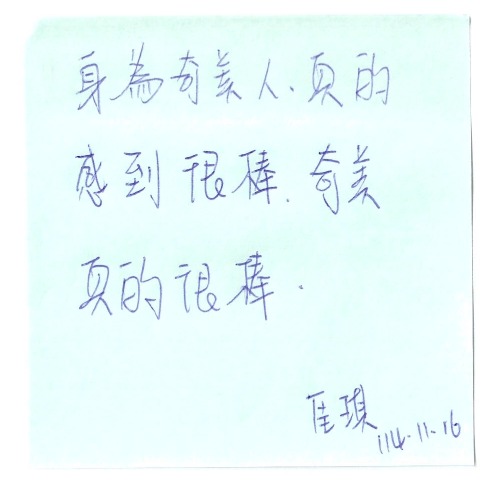 身為奇美人.真的
感到很棒.奇美
真的很棒.
佳琪
114.11.16